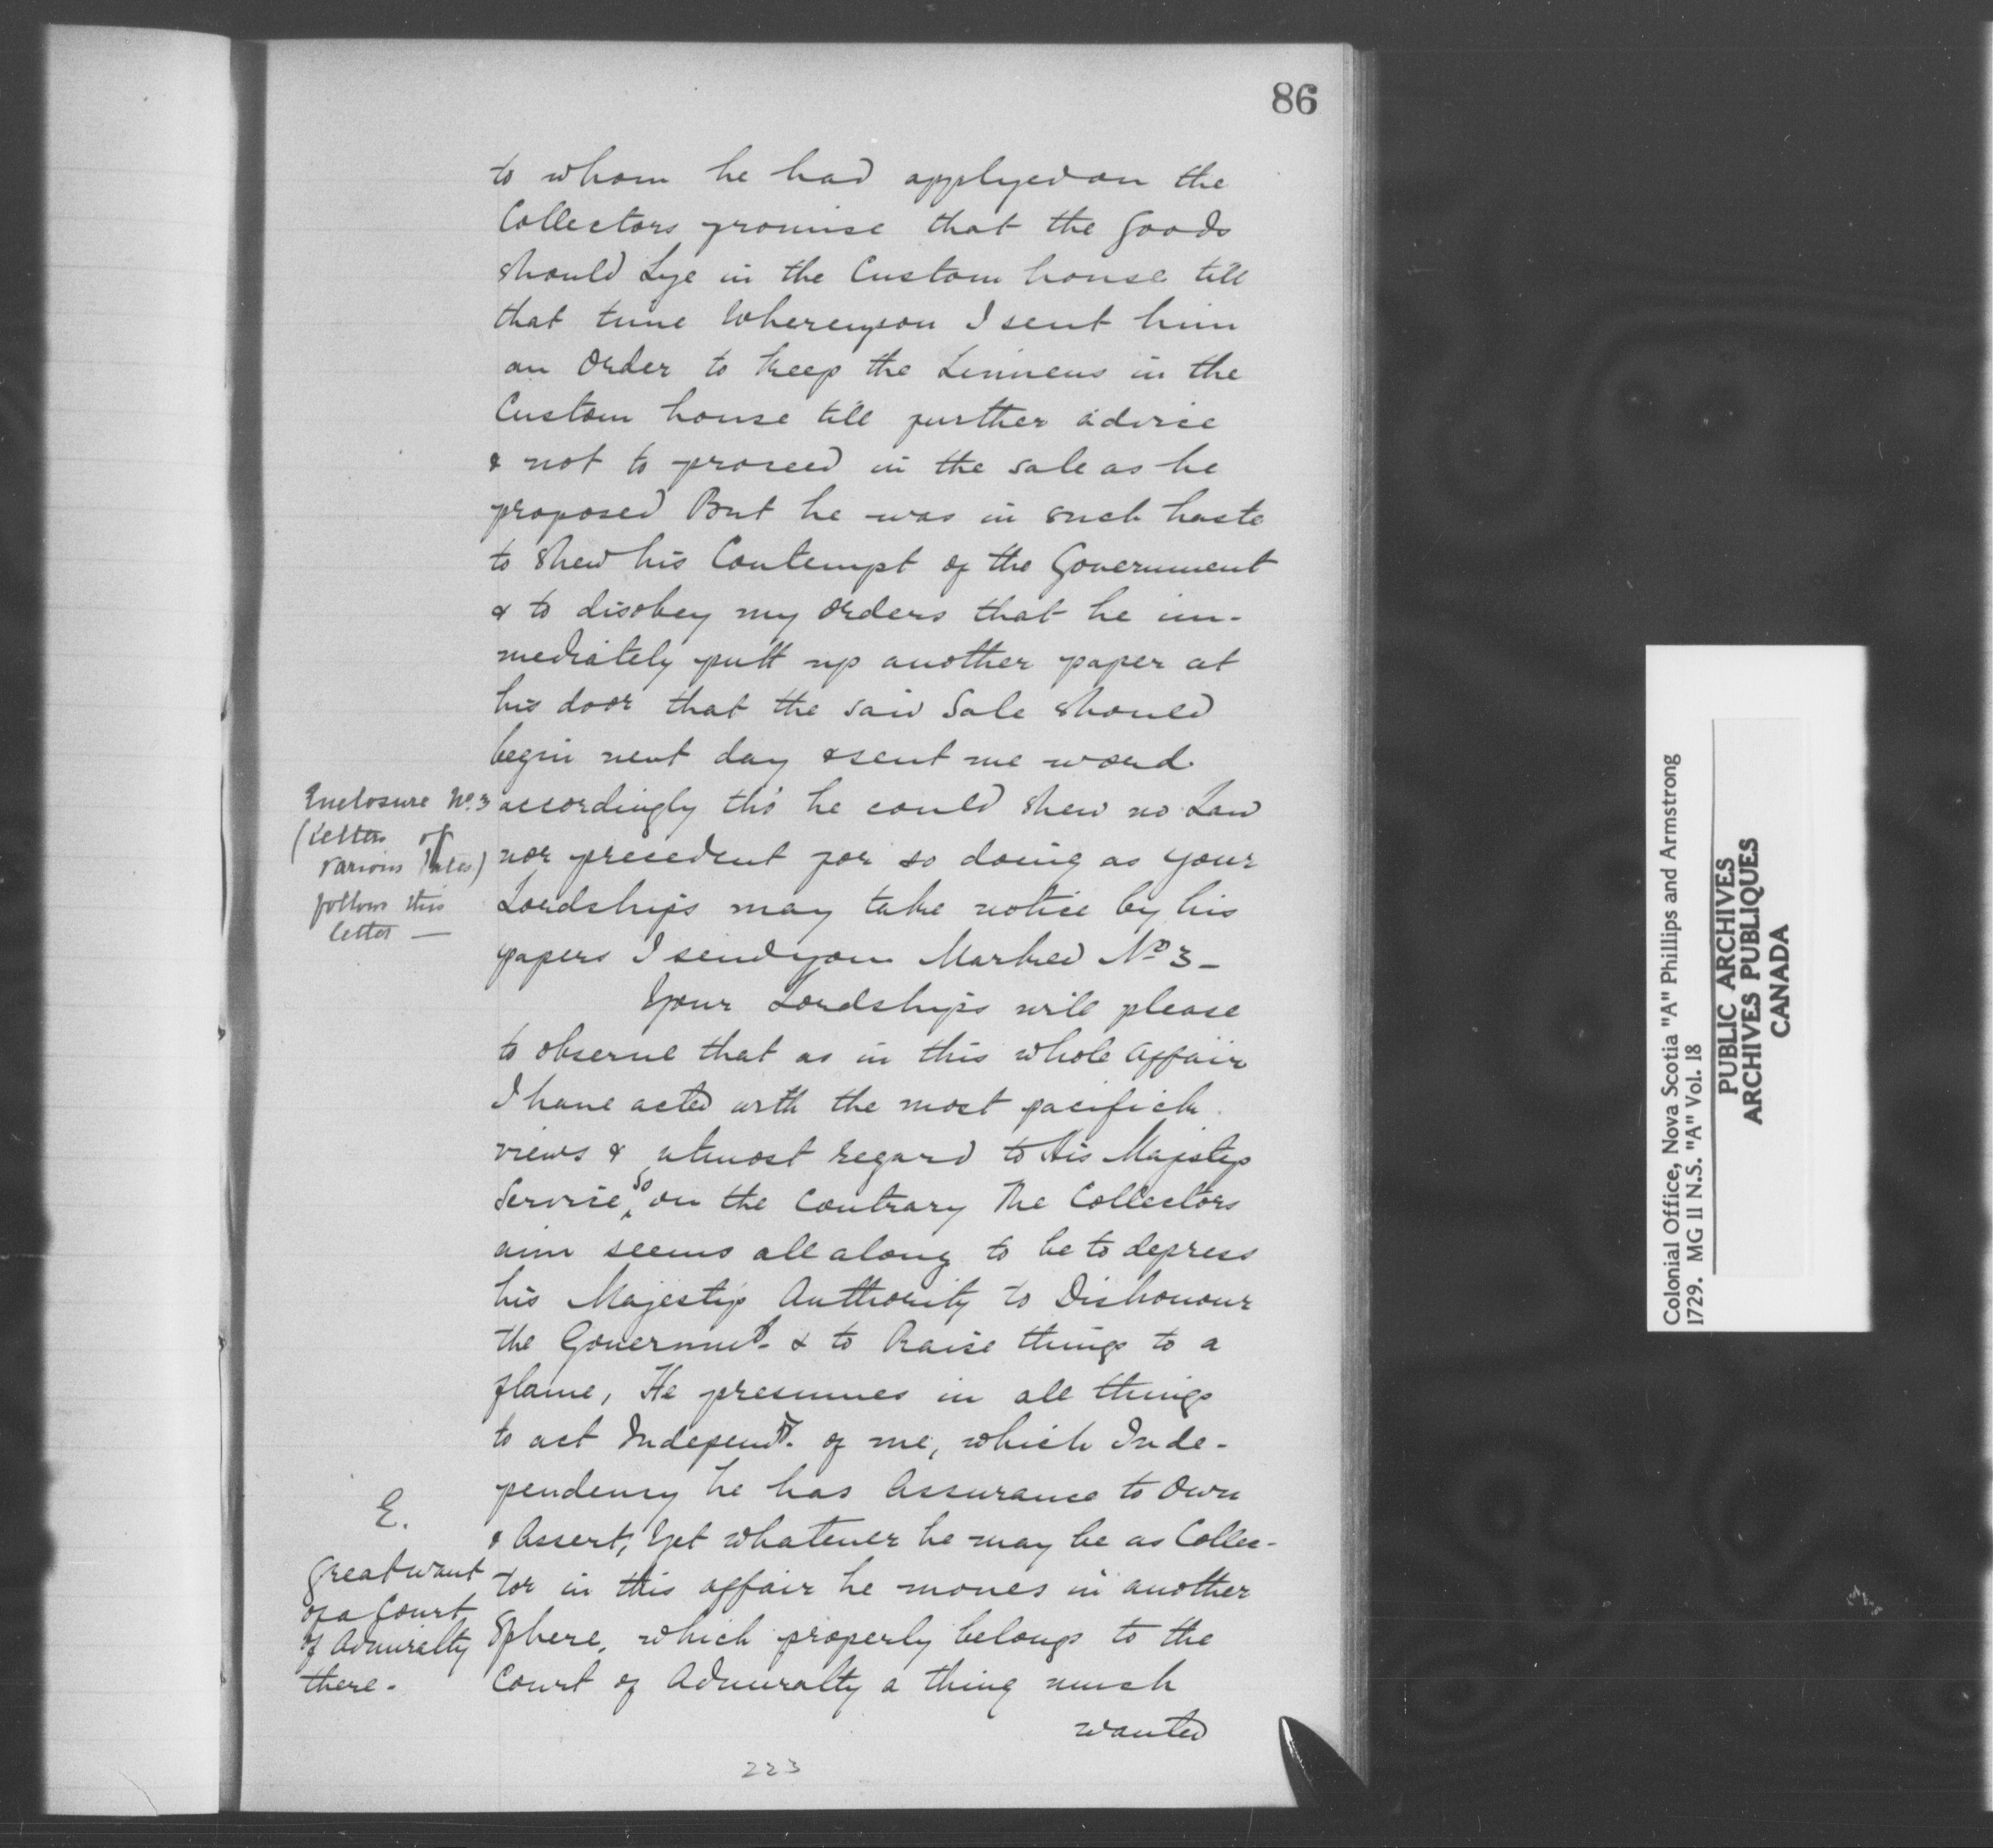 86
to whom he had applyed on the
Collectors promise that the Goods
should Lye in the Custom house till
that time Whereupon I sent him
an Order to keep the Linnens in the
Custom house till further advice
& not to proceed in the sale as he
proposed But he was in such haste
to shew his Contempt of the Government
& to disobey my Orders that he im-
mediately putt up another paper at
his door that the said Sale should
begin next day & sent me word
accordingly tho' he could shew no Law
nor precedent for so doing as your
Lordships may take notice by his
papers I send you Marked No 3 -
Enclosure No. 3
(Letters of
various dates)
follow this
letter —
Your Lordships will please
to observe that as in this whole affair
I have acted with the most pacifick
views & utmost regard to His Majestys
Service, so on the Contrary The Collectors
aim seems all along to be to depress
his Majestys Authority to Dishonour
the Governmt. & to Raise things to a
flame, He presumes in all things
to act Independt. of me, which Inde-
pendency he has Assurance to Own
& Assert, Yet whatever he may be as Collec-
tor in this affair he moves in another
Sphere, which properly belongs to the
Court of Admiralty a thing much
wanted
E.
Great want
of a Court
of Admiralty
there.
223
Colonial Office, Nova Scotia "A" Phillips and Armstrong
1729. MG 11 N.S. "A" Vol. 18
PUBLIC ARCHIVES
ARCHIVES PUBLIQUES
CANADA